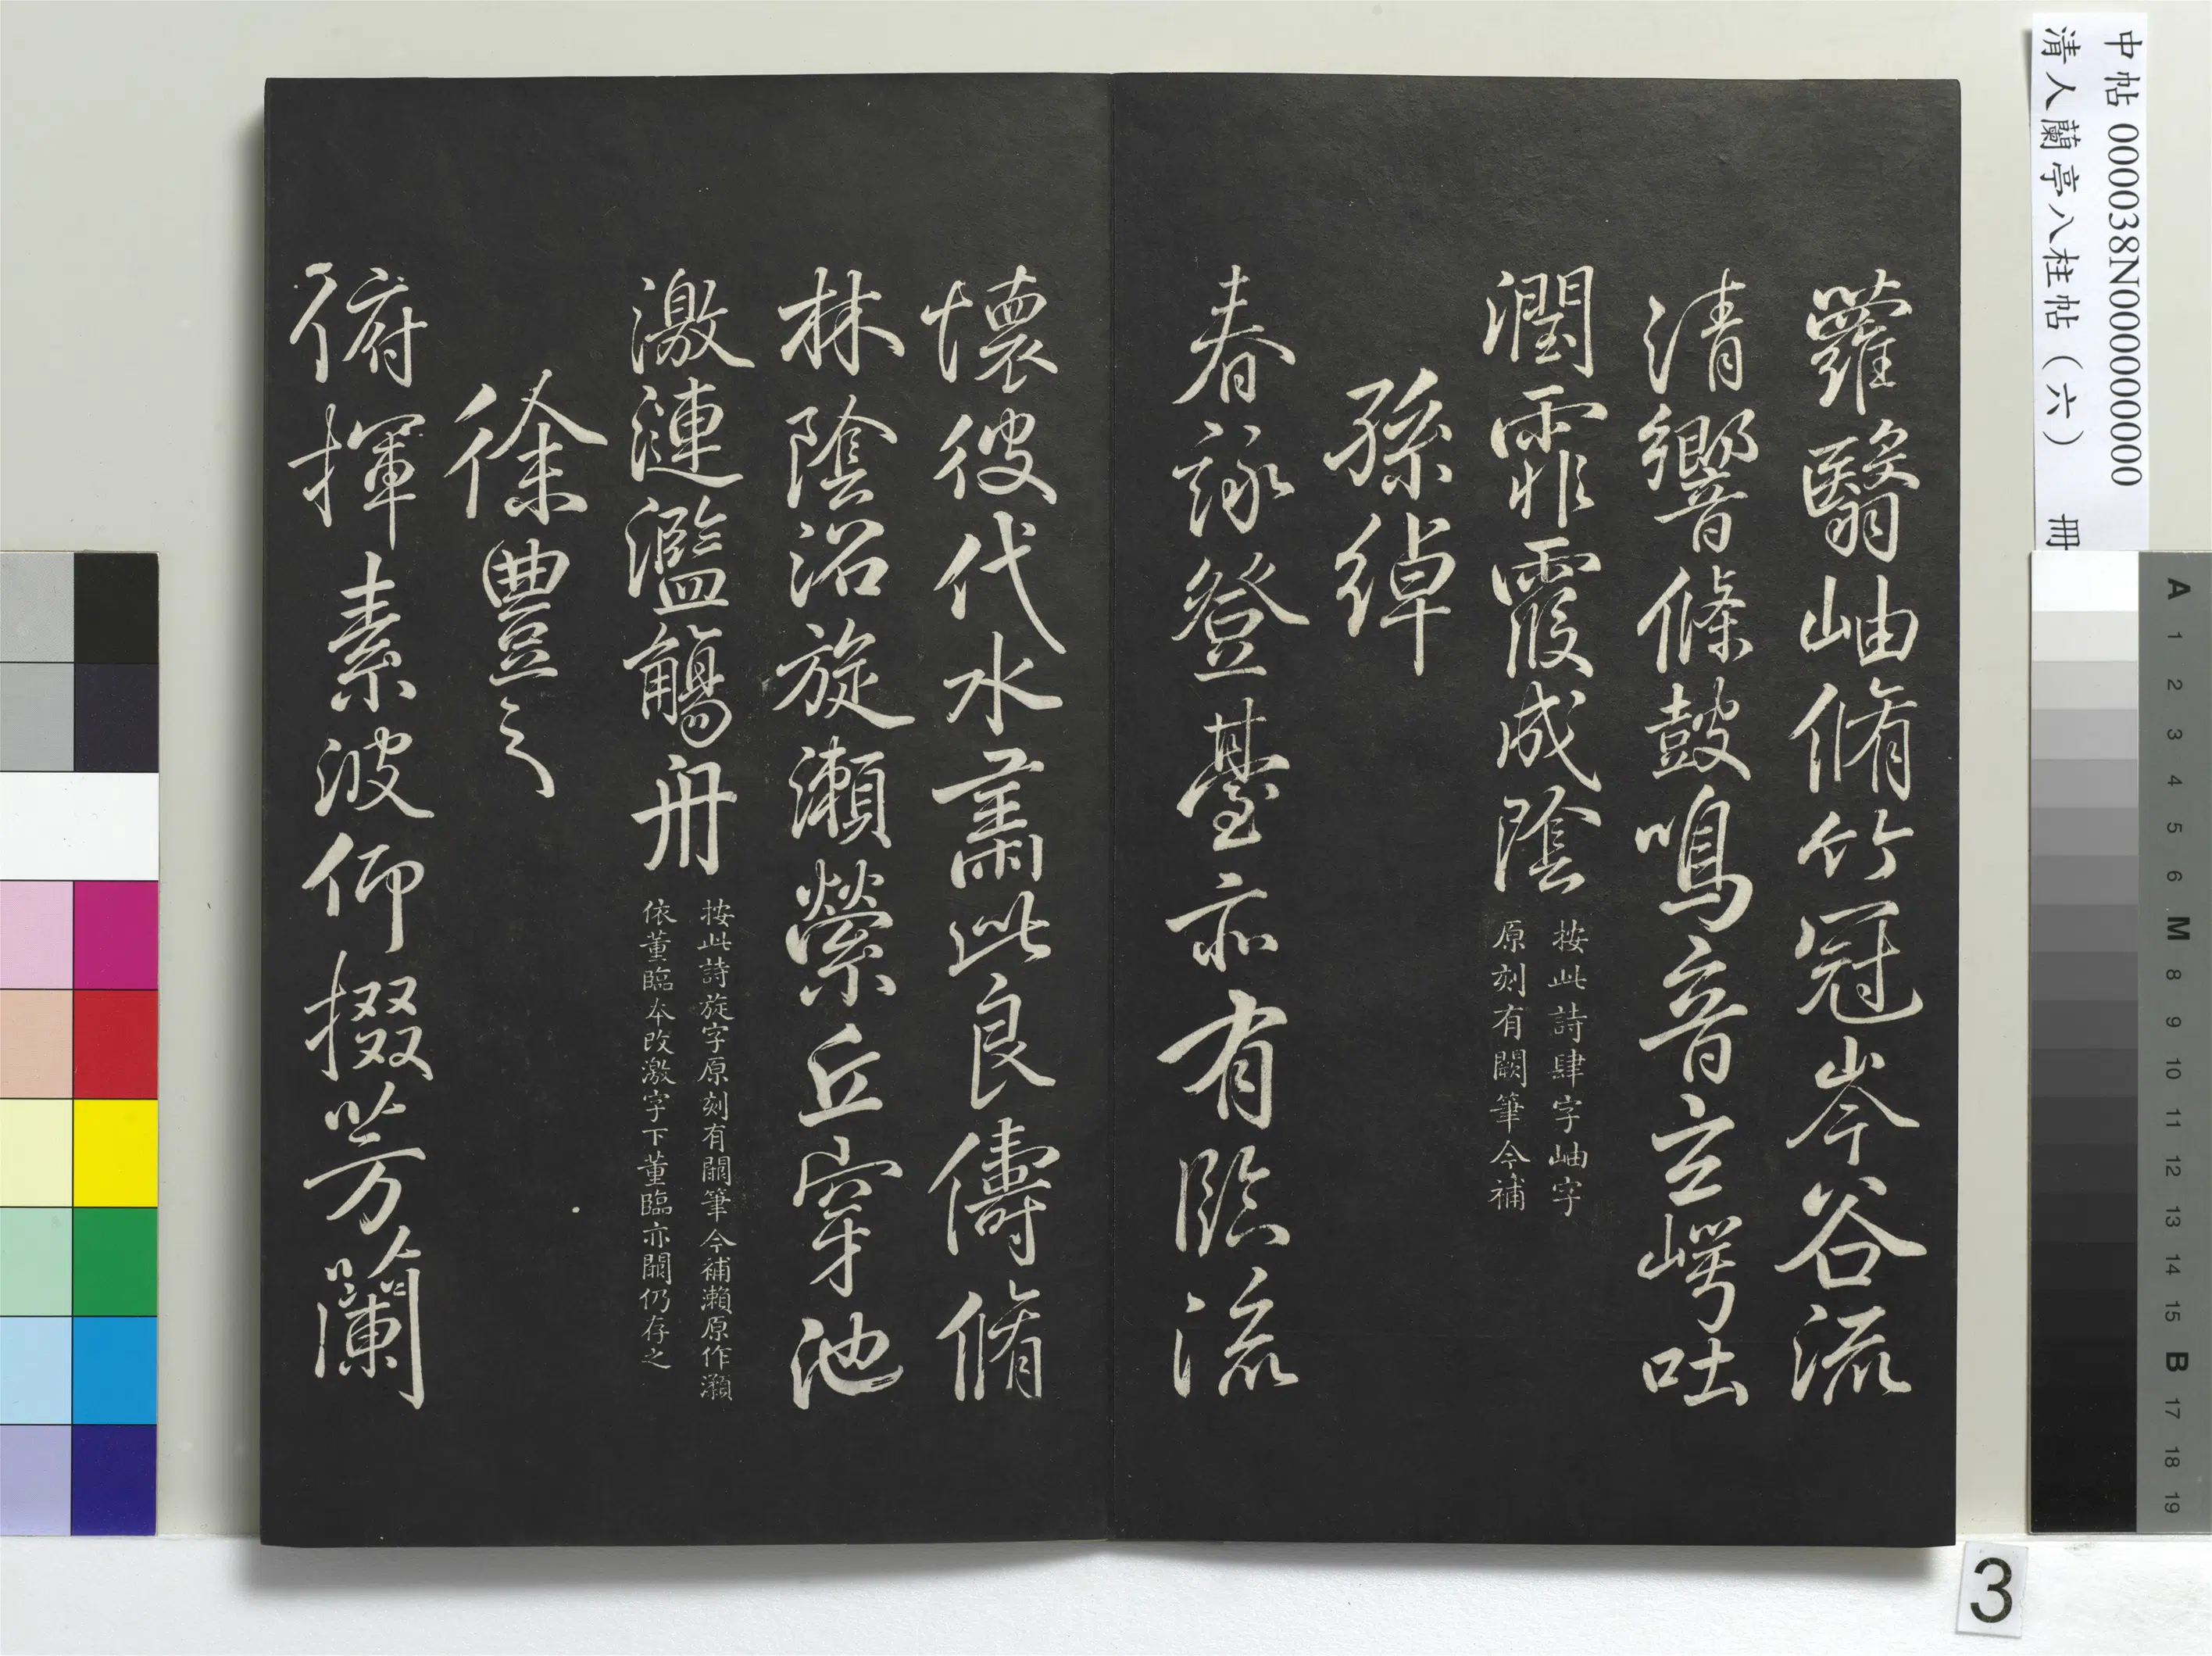 蘿翳岫脩竹冠岑谷流
清響條鼓鳴音玄崿吐
潤霏霧成陰
按此詩肆字岫字
原刻有闕筆今補
孫綽
春詠登臺亦有臨流
懷彼伐木肅此良儔脩
林陰沼旋瀨縈丘穿池
激漣濫觴舟
按此詩旋字原刻有闕筆今補瀨原作瀕
依董臨本改激字下董臨亦闕仍存之
徐豐之
俯揮素波仰掇芳蘭
中帖 000038N000000000
清人蘭亭八柱帖（六） 冊
3
A 1 2 3 4 5 6 M 8 9 10 11 12 13 14 15 B 17 18 19